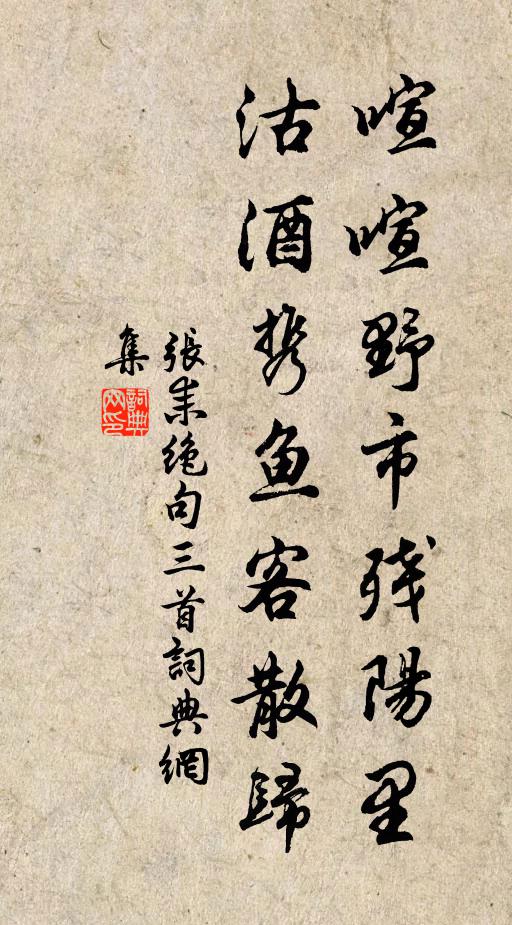 喧喧野市残陽里
沽酒携鱼客散歸
張耒絶句三首詞典網
集
詞典網印